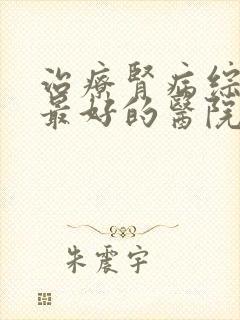 治療腎病綜
最好的醫院
朱震宇